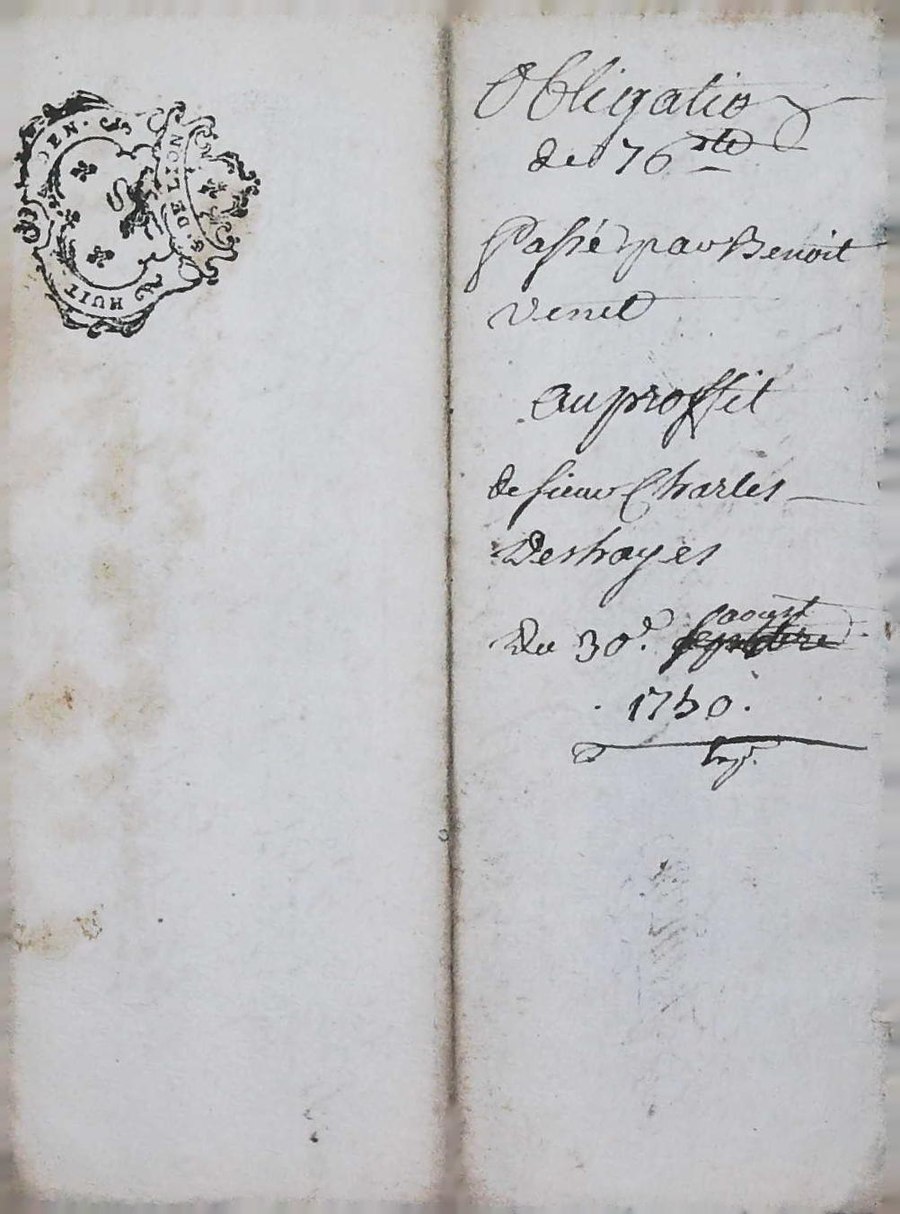 HUIT DEN.
G. DE LION
Obligatio
de 76 lt
Passé par Benoit
Venet
au proffit
de sieur Charles
Deshayes
Du 30e. aoust
1750.